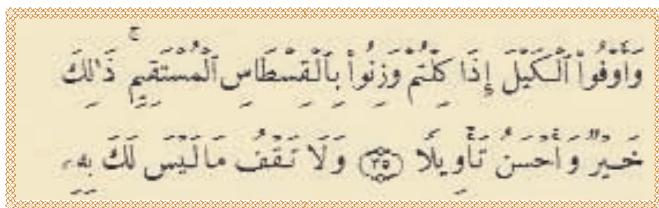 وَأَوْفُوا۟ ٱلْكَيْلَ إِذَا كِلْتُمْ وَزِنُوا۟ بِٱلْقِسْطَاسِ ٱلْمُسْتَقِيمِ ۚ ذَٰلِكَ
خَيْرٌ وَأَحْسَنُ تَأْوِيلًا ﴿٣٥﴾ وَلَا تَقْفُ مَا لَيْسَ لَكَ بِهِۦ